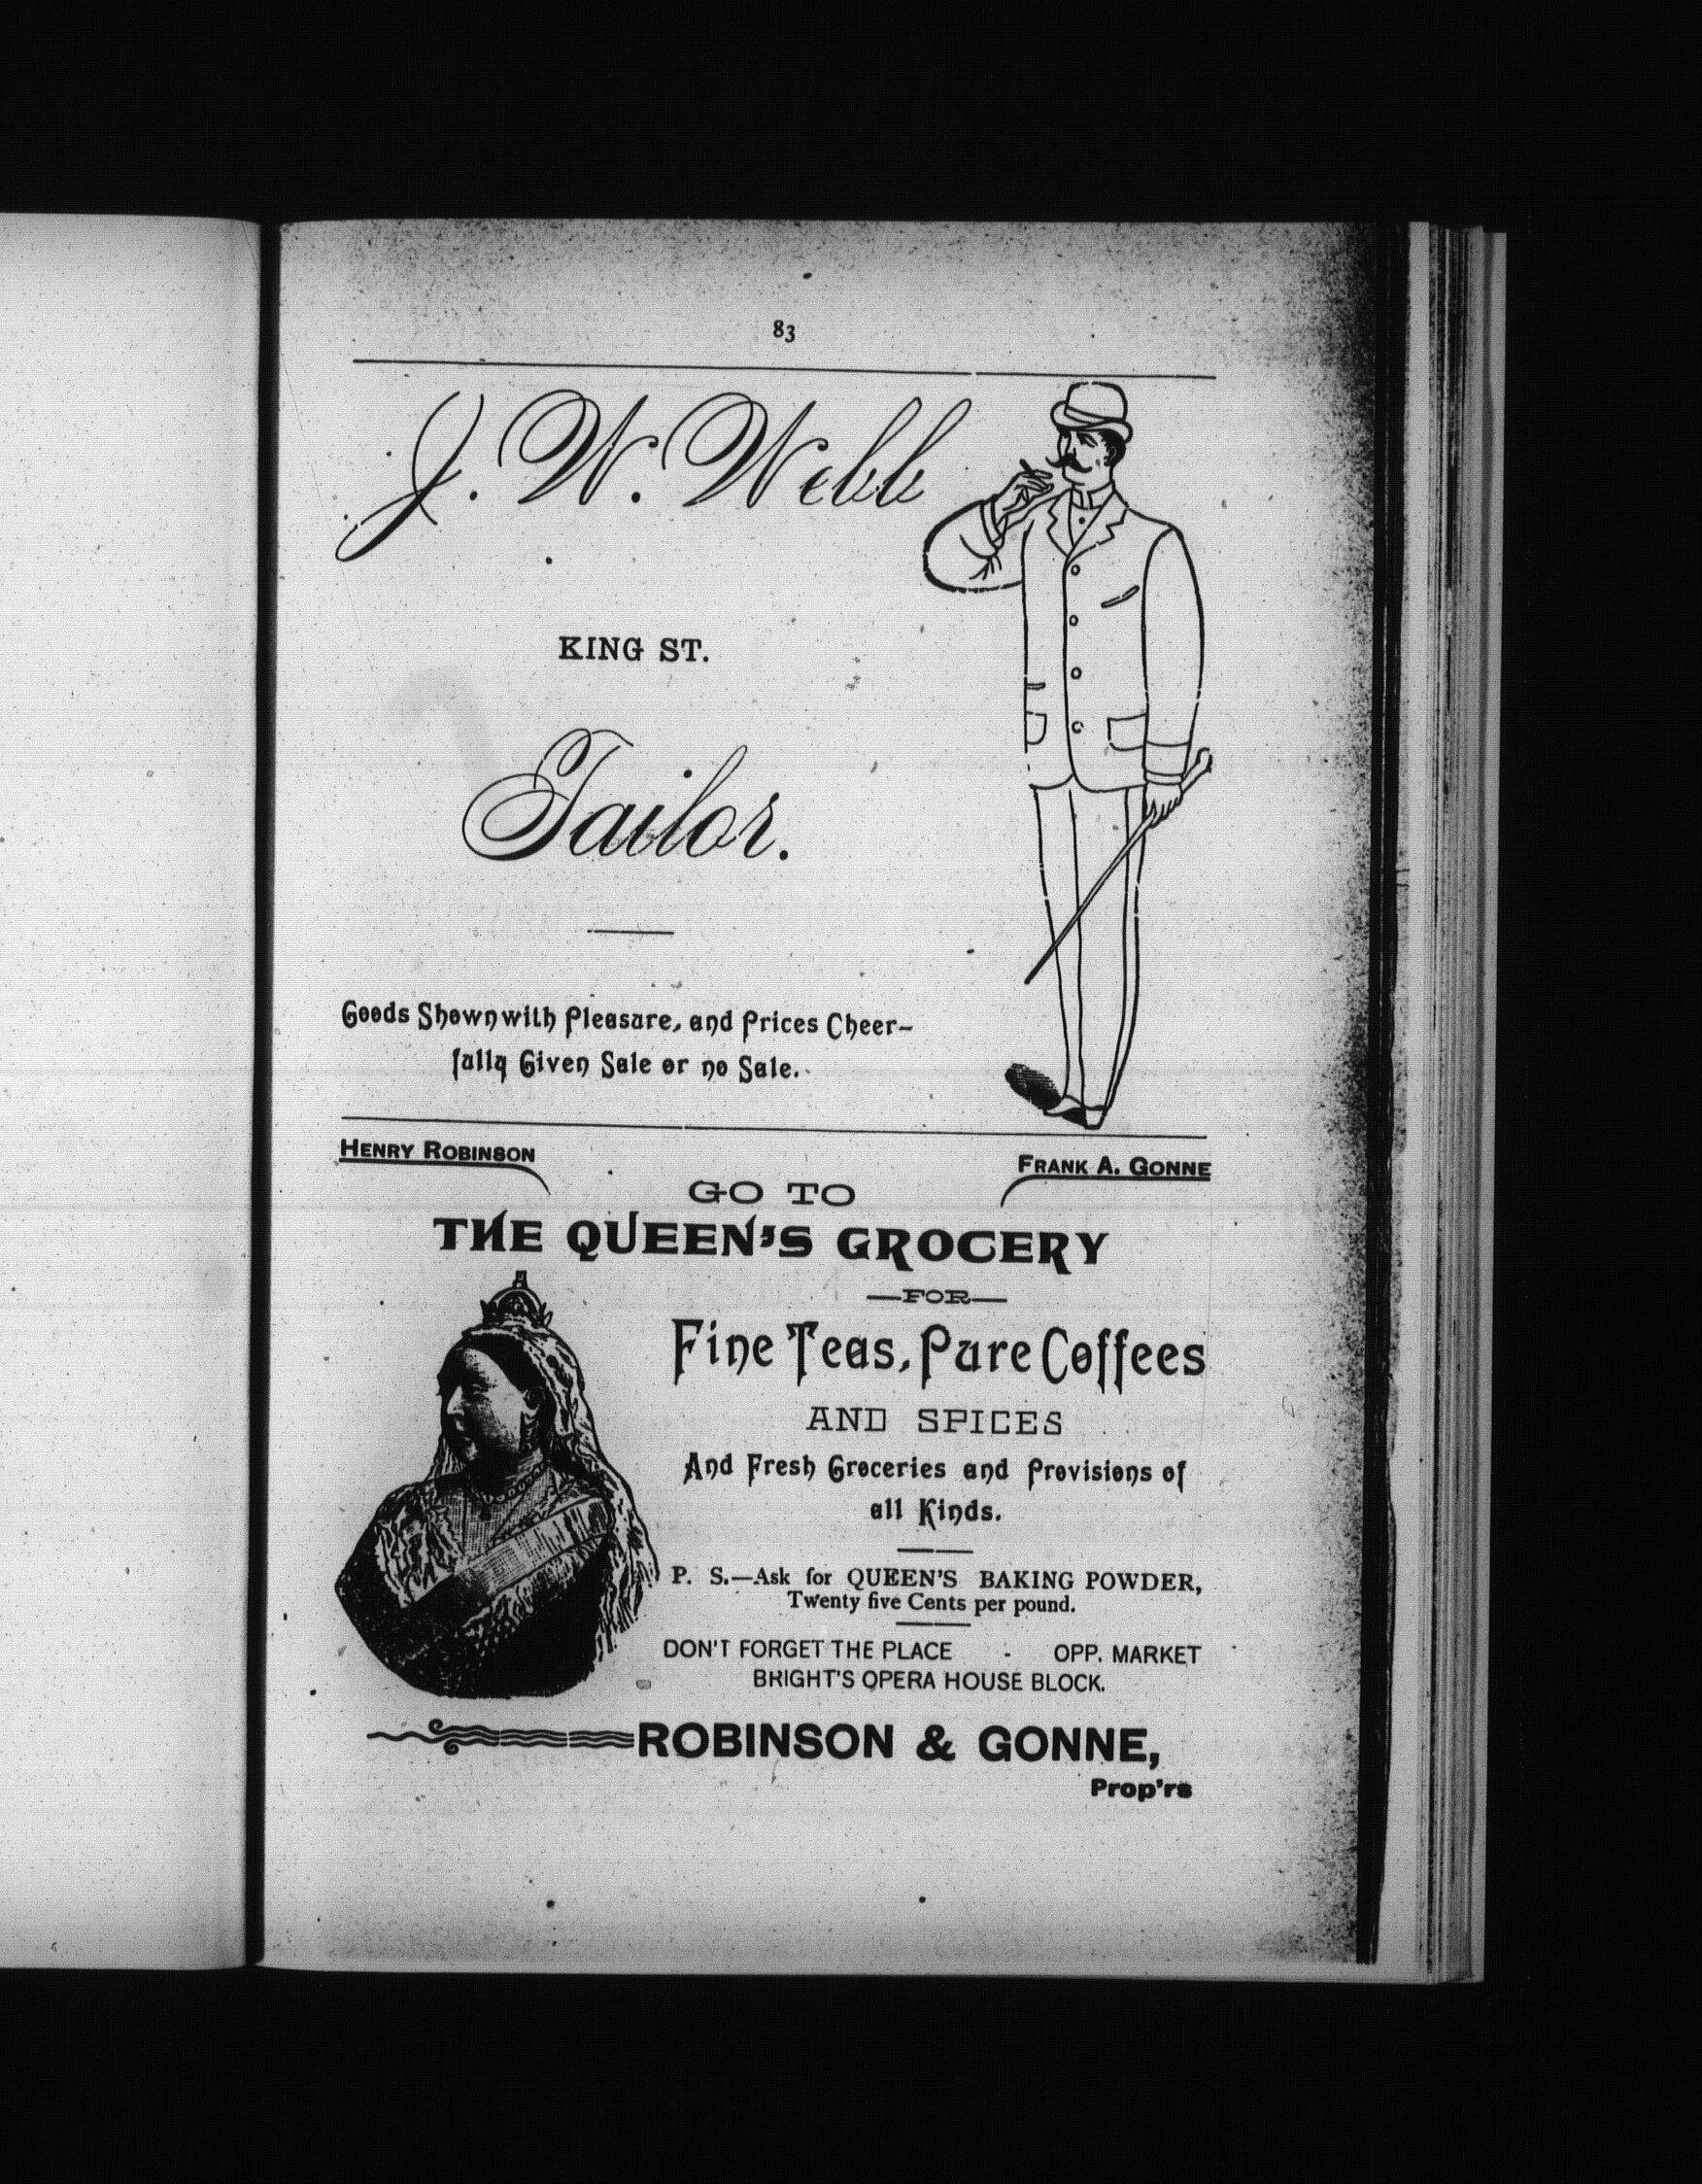 83
J. W. Webb
KING ST.
Tailor.
Goods Shown with Pleasure, and Prices Cheer-
fully Given Sale or no Sale.
HENRY ROBINSON
FRANK A. GONNE
GO TO
THE QUEEN'S GROCERY
—FOR—
Fine Teas, Pure Coffees
AND SPICES
And Fresh Groceries and Provisions of
all Kinds.
P. S.—Ask for QUEEN'S BAKING POWDER,
Twenty five Cents per pound.
DON'T FORGET THE PLACE - OPP. MARKET
BRIGHT'S OPERA HOUSE BLOCK.
ROBINSON & GONNE,
Prop'rs